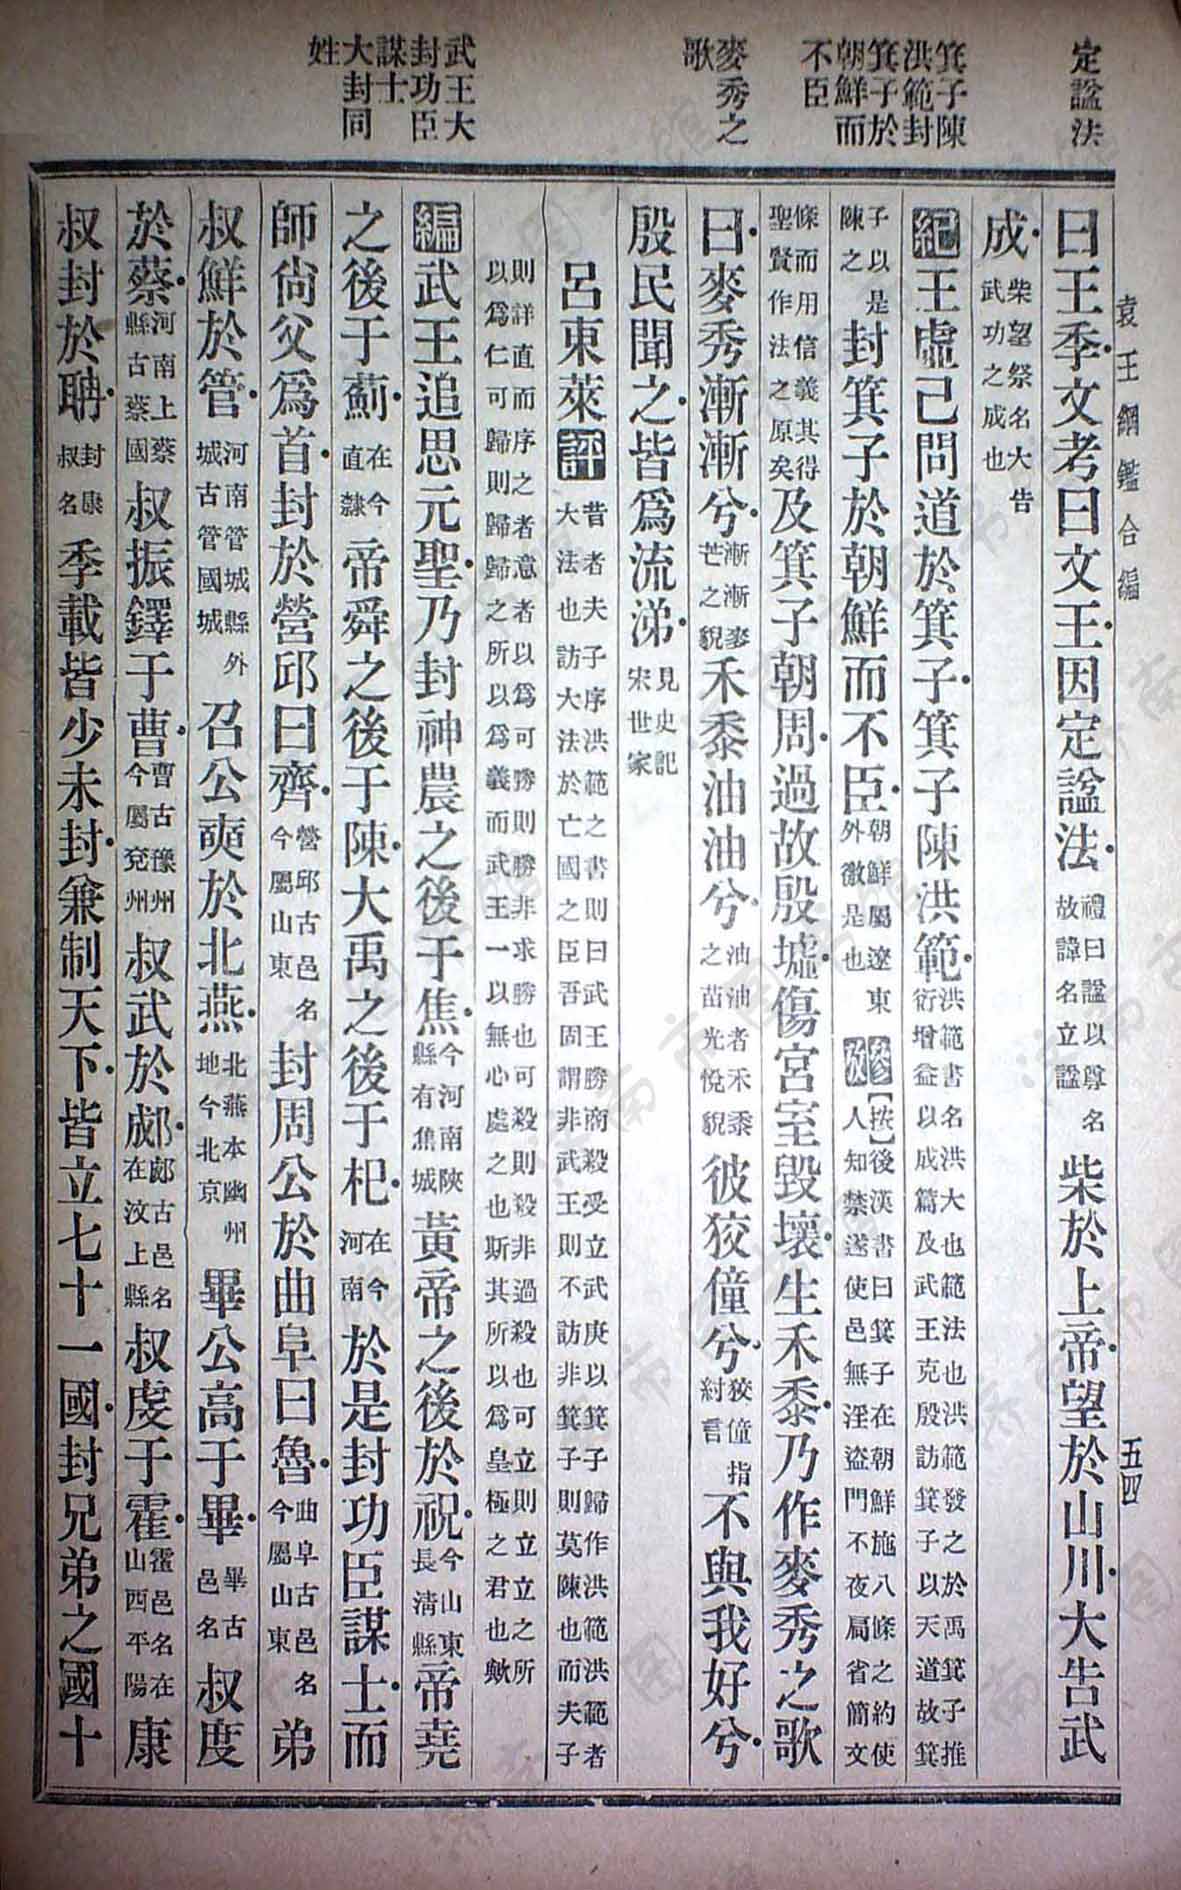 定諡法
箕子陳
洪範封
箕子於
朝鮮而
不臣
麥秀之
歌
武王大
封功臣
謀士
大封同
姓
袁王綱鑑合編
五四
曰王季文考曰文王因定諡法禮曰諡以尊名故諱名立諡柴於上帝望於山川大告武
成柴望祭名大告武功之成也
紀王虛己問道於箕子箕子陳洪範洪範書名洪大也範法也洪範發之於禹箕子推衍增益以成篇及武王克殷訪箕子以天道故箕
子以是陳之封箕子於朝鮮而不臣朝鮮屬遼東外徼是也【按】後漢書曰箕子在朝鮮施八條之約使人知禁遂使邑無淫盜門不夜扃省簡文
條而用信義其得聖賢作法之原矣及箕子朝周過故殷墟傷宮室毀壞生禾黍乃作麥秀之歌
曰麥秀漸漸兮漸漸麥芒之貌禾黍油油兮油油者禾黍之苗光悅貌彼狡僮兮狡僮指紂言不與我好兮
殷民聞之皆爲流涕見史記宋世家
呂東萊評昔者夫子序洪範之書則曰武王勝商殺受立武庚以箕子歸作洪範洪範者大法也訪大法於亡國之臣吾固謂非武王則不訪非箕子則莫陳也而夫子
則詳直而序之者意者以爲可勝則勝非求勝也可殺則殺非過殺也可立則立立之所以爲仁可歸則歸歸之所以爲義而武王一以無心處之也斯其所以爲皇極之君也歟
編武王追思元聖乃封神農之後于焦今河南陝縣有焦城黃帝之後於祝今山東長清縣帝堯
之後于薊在今直隸帝舜之後于陳大禹之後于杞在今河南於是封功臣謀士而
師尙父爲首封於營邱曰齊營邱古邑名今屬山東封周公於曲阜曰魯曲阜古邑名今屬山東弟
叔鮮於管河南管城縣外城古管國城召公奭於北燕北燕本幽州地今北京畢公高于畢畢古邑名叔度
於蔡河南上蔡縣古蔡國叔振鐸于曹曹古豫州今屬兗州叔武於郕郕古邑名在汶上縣叔虔于霍霍邑名在山西平陽康
叔封於聃封康叔名季載皆少未封兼制天下皆立七十一國封兄弟之國十